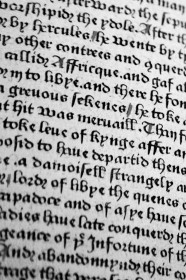 afterward: the sepu
worshipid the ydole. After th
by hercules / he wente by t
y other contrees and q
callid Affricque. and gaf al
m to libye. and there he fon
grevous sekenes / he to
t hit was mervaill. Than
toke leve of kynge affer an
posid to have departid thens
e. a damoisell strangely a
lordy of libye the quenes
capadoce and of asye have
ladies have late conquerd
geance of yͤ Infortune of th
And habandonnyng
rage that